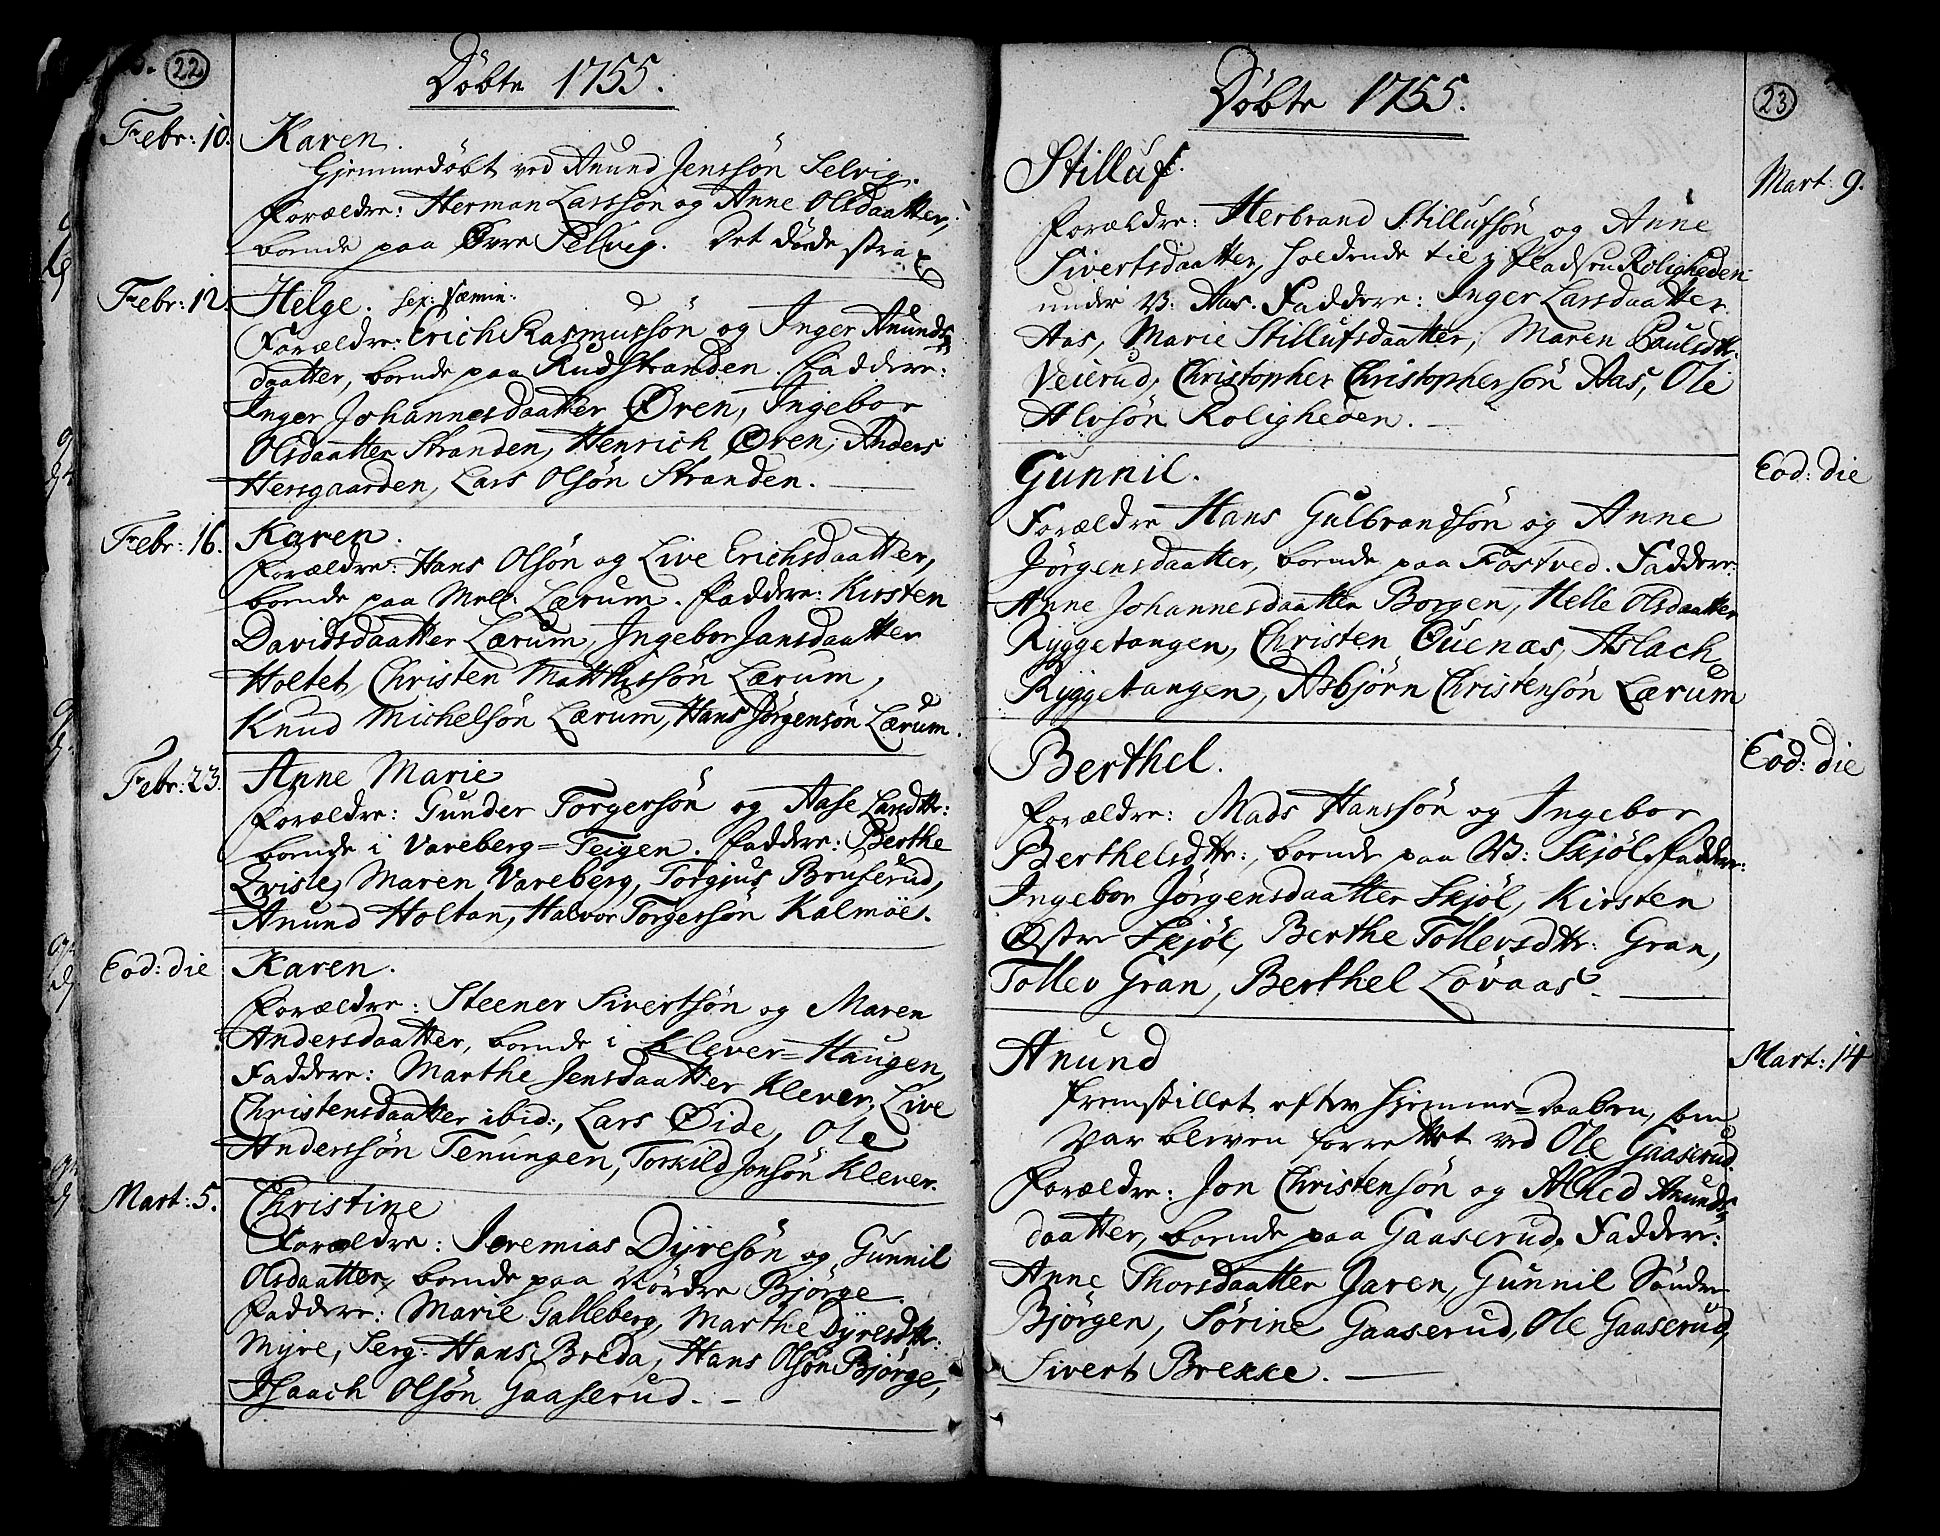 22
Döbte 1755.
Febr: 10. Karen.
Hjemmedöbt ved Anund Jenssön Selvig.
Forældre: Herman Larssön og Anne Olsdaatter,
boende paa Øvre Selvig. Det döde strax
Febr: 12. Helge. sex: fæmin:
Forældre: Erich Rasmussön og Inger Anunds
daatter, boende paa Rudstranden. Faddere:
Inger Johannesdaatter Øren, Ingebor
Olsdaatter Stranden, Henrich Øren, Anders
Hersgaarden, Lars Olsön Stranden.
Febr: 16. Karen.
Forældre: Hans Olsön og Live Erichsdaatter,
boende paa Mell. Lærum. Faddere: Kirsten
Davidsdaatter Lærum, Ingebor Jansdaatter
Holtet, Christen Matthissön Lærum,
Knud Michelsön Lærum, Hans Jörgensön Lærum.
Febr: 23. Anne Marie
Forældre: Gunder Torgersön og Aase Larsdtr:
boende i Vareberg=Teigen. Faddere: Berthe
Qvisle, Maren Vareberg, Torgjus Bruserud,
Anund Holtan, Halvor Torgersön Kalmöe.
Eod: die Karen.
Forældre: Steener Sivertsön og Maren
Andersdaatter, boende i Klever=Haugen,
Faddere: Marthe Jensdaatter Klever, Live
Christensdaatter ibid:, Lars Øide, Ole
Anderssön Tenungen, Torkild Jonsön Klever.
Mart: 5. Christine
Forældre: Jeremias Dyresön og Gunnil
Olsdaatter, boende paa Nördre Bjørge.
Faddere: Marie Galleberg, Marthe Dyresdtr:
Myre, Serg: Hans Breda, Hans Olsön Bjørge,
Isaach Olsön Gaaserud.
23
Döbte 1755.
Stilluf. Mart: 9.
Forældre: Herbrand Stillufsön og Anne
Sivertsdaatter, holdende til i Pladsen Roligheden
under V: Aas. Faddere: Inger Larsdaatter
Aas, Marie Stillufsdaatter, Maren Paulsdtr:
Veierud, Christopher Christophersön Aas, Ole
Alvsön Roligheden.
Gunnil. Eod: die
Forældre Hans Gulbrandsön og Anne
Jörgensdaatter, boende paa Fostved. Faddere:
Anne Johannesdaatter Borgen, Helle Olsdaatter
Ryggetangen, Christen Quenæs, Aslach
Ryggetangen, Asbjørn Christensön Lærum
Berthel. Eod: die
Forældre: Mads Hanssön og Ingebor
Berthelsdtr:, boende paa V: Skjöl. Faddere:
Ingebor Jörgensdaatter Skjöl, Kirsten
Østre Skjöl, Berthe Tollevsdtr: Gran,
Tollev Gran, Berthel Lövaas.
Anund Mart: 14
Fremstillet efter Hjemme=daaben, som
var bleven forrettet ved Ole Gaaserud.
Forældre: Jon Christensön og Alhed Anunds
daatter, boende paa Gaaserud. Faddere:
Anne Thorsdaatter Jaren, Gunnil Söndre
Bjørgen, Sörine Gaaserud, Ole Gaaserud,
Sivert Brekke.